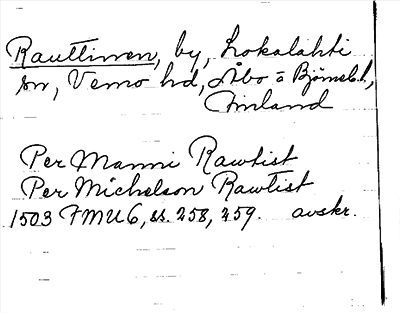 Rauttinen, by, Lokalahti
sn, Vemo hd, Åbo o Björneb. l.,
Finland
Per Manni Rawtist
Per Michelson Rawtist
1503 FMU 6, ss. 258, 259. avskr.